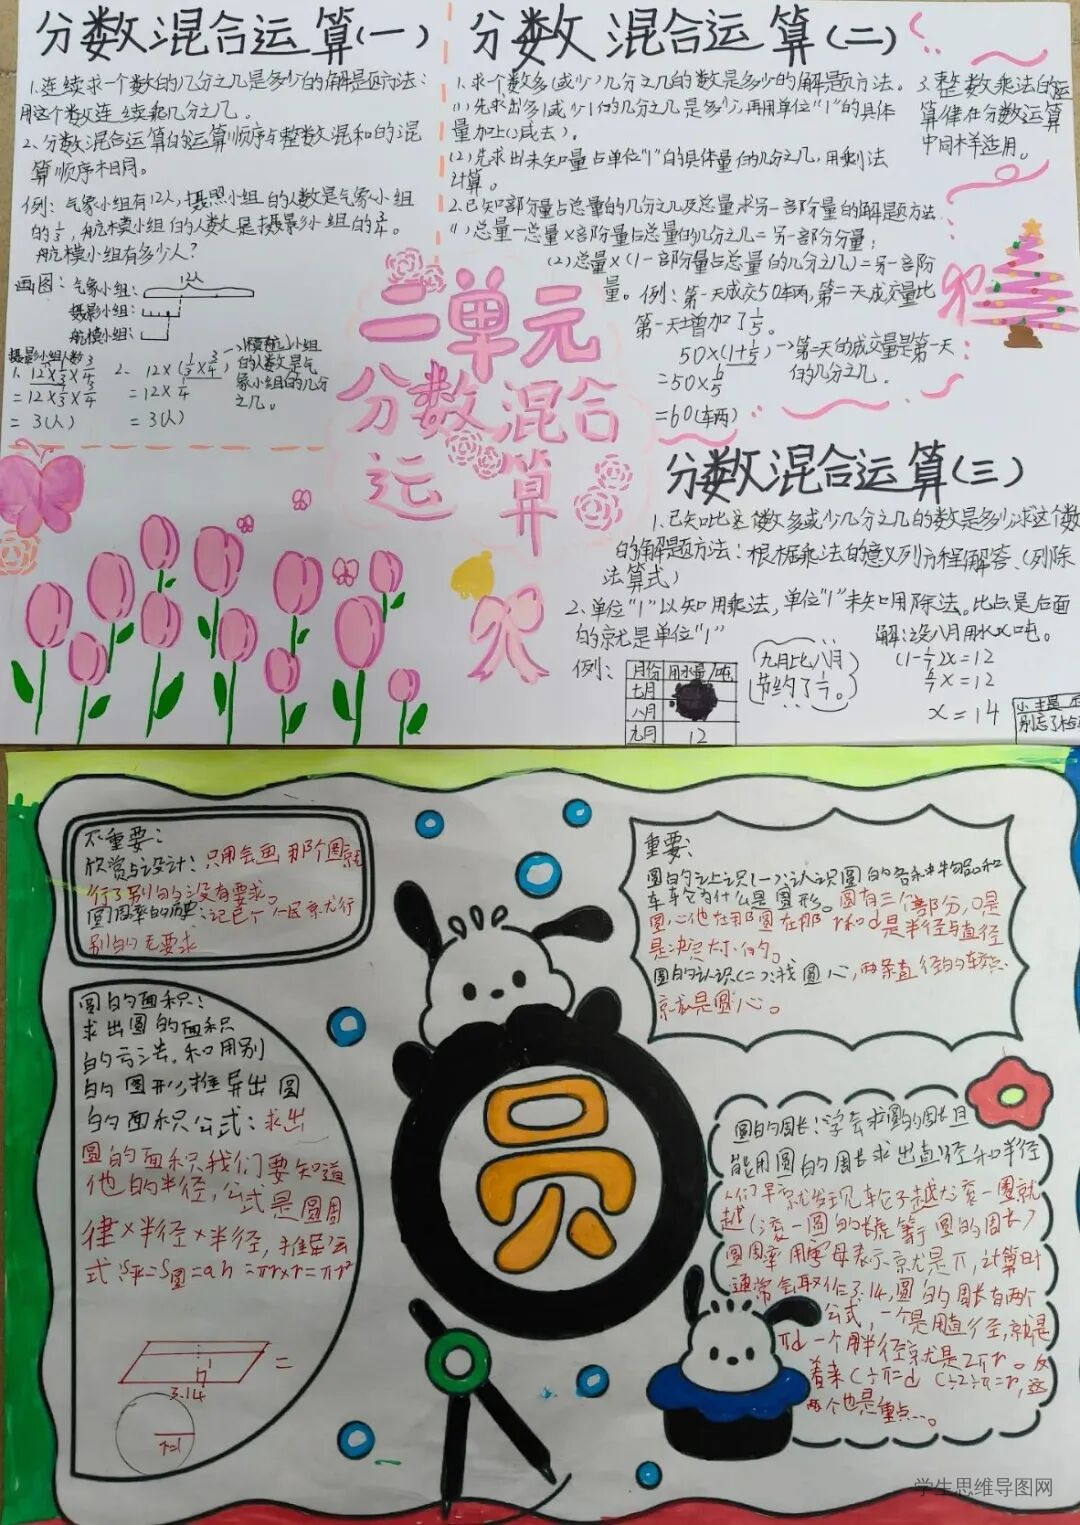 分数混合运算(一)
1.连续求一个数的几分之几是多少的解题方法：
用这个数连续乘几分之几。
2.分数混合运算的运算顺序与整数混和的混
算顺序相同。
例：气象小组有12人,摄照小组的人数是气象小组
的1/3,航模小组的人数是摄影小组的3/4。
航模小组有多少人?
画图：气象小组：
12人
摄影小组：
航模小组：
摄影小组人数
1、12×1/3×3/4
=12×1/3×3/4
=3(人)
2、12×(1/3×3/4)
=12×1/4
=3(人)
小组
的人数是气
象小组的几分
之几。
分数混合运算(二)
1.求个数多(或少)几分之几的数是多少的解题方法。
(1)先求出多(或少)的几分之几是多少,再用单位"1"的具体
量加上(减去)。
(2)先求出未知量占单位"1"的具体量的几分之几,用乘法
计算。
2.已知部分量占总量的几分之几及总量求另一部分量的解题方法
(1)总量-总量×部分量占总量的几分之几=另一部分分量；
(2)总量×(1-部分量占总量的几分之几)=另一部份
量。例：第一天成交50车两,第二天成交量比
第一天增加了1/5。
50×(1+1/5)→第二天的成交量是第一天
的几分之几.
=50×6/5
=60(车两)
3.整数乘法的运
算律在分数运算
中同样适用。
二单元
分数混合
运算
分数混合运算(三)
1.已知比这个数多或少几分之几的数是多少求这个数
的解题方法：根据乘法的意义列方程解答、(列除
法算式)
2.单位"1"以知用乘法,单位"1"未知用除法。比占是后面
的就是单位"1"
例：
月份 用水量/吨
七月
八月
九月 12
九月比八月
节约了1/7。
解：设八月用水x吨。
(1-1/7)x=12
6/7x=12
x=14
不重要：
欣赏与设计：只用会画那个圆就
行了别的没有要求。
圆周率的历史：记已个人民就行
别的无要求
圆的面积：
求出圆的面积
的方法。和用别
的图形推导出圆
的面积公式：求出
圆的面积我们要知道
他的半径,公式是圆周
律×半径×半径,推导公
式：S平=S圆=ah=πr×r=πr²
h
=
3.14
r=1
圆
重要：
圆的认识(一)：认识圆的各种物品和
车车它为什么是圆形。圆有三个部分,O是
圆心他在那圆在那r和d是半径与直径
是决定大小的。
圆的认识(二)：找圆心,两条直径的交点
就是圆心。
圆的周长：学会求圆的周长且
能用圆的周长求出直径和半径
人们早就发现车轮子越大滚一圈就
越(滚一圆的长度等于圆的周长)
圆周率用字母表示就是π,计算时
通常会取作3.14,圆的周长有两个
公式,一个是用直径,就是
πd一个用半径就是2πr。反
着来C÷π=d C÷2÷π=r,这
两个也是重点…。
学生思维导图网